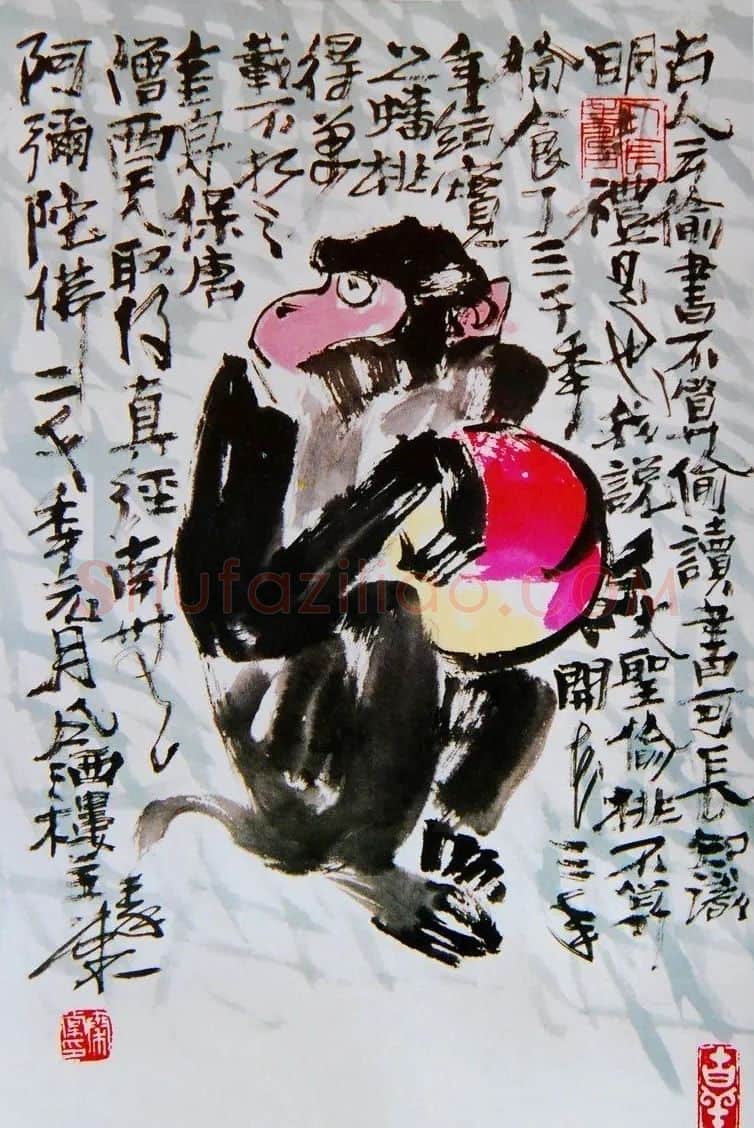 古人云偷書不算偷讀書可長知識
明禮是也我說大聖偷桃不算
偷食了三千年開花三千
年結實
之蟠桃
得萬
載不朽之
金身保唐
僧西天取得真經南無
阿彌陀佛二千年元月酒樓主
Shufaziliao.COM
吉羊